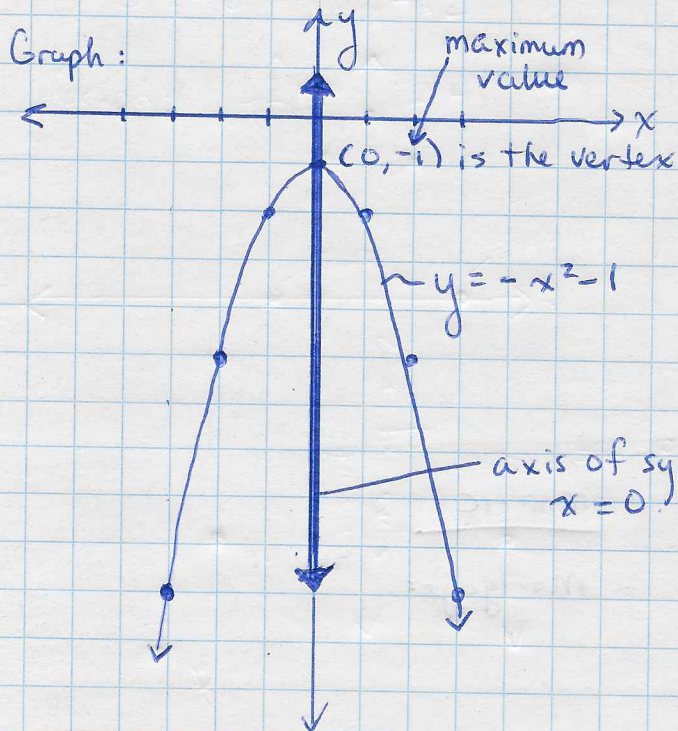 y
Graph :
maximum
value
x
(0, -1) is the vertex
y = - x² - 1
axis of sy
x = 0.